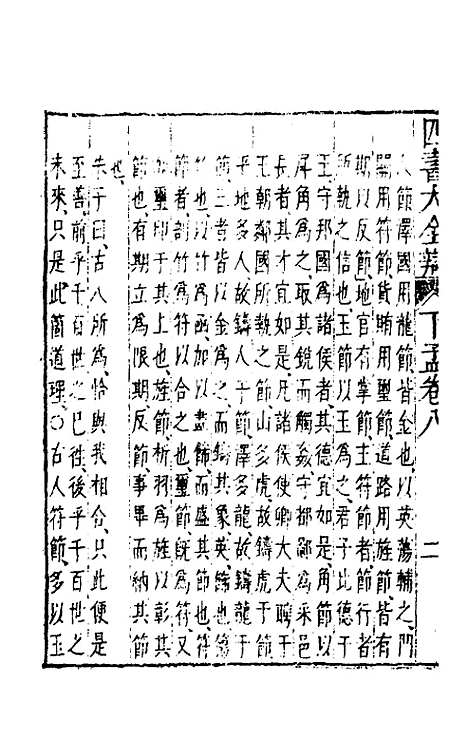 四書大全辯 下孟卷八 二
人節澤國用龍節皆金也以英蕩輔之門
關用符節貨賄用璽節道路用旌節皆有
期以反節地官有掌節主符節者節行者
所執之信也玉節玉爲之君子比德于
玉守邦國爲諸侯者其德宜如是角節以
犀角爲之取其銳而觸姦守都鄙爲采邑
長者其才宜如是凡諸侯使卿大夫聘于
王朝鄰國所執之節山多虎故鑄虎于節
平地多人故鑄人于節澤多龍故鑄龍于
節三者皆以金爲之其象英鑄也蕩
竹也以竹爲函加以畫飾而盛其節也符
節者剖竹爲符以合之也璽節旣爲符又
加璽印于其上也旌節析羽爲旌以彰其
節也有期立爲限期反節事畢而納其節
也
朱子曰古人所爲恰與我相合只此便是
至善前乎千百世之已徃後乎千百世之
未來只是此箇道理○古人符節多以玉